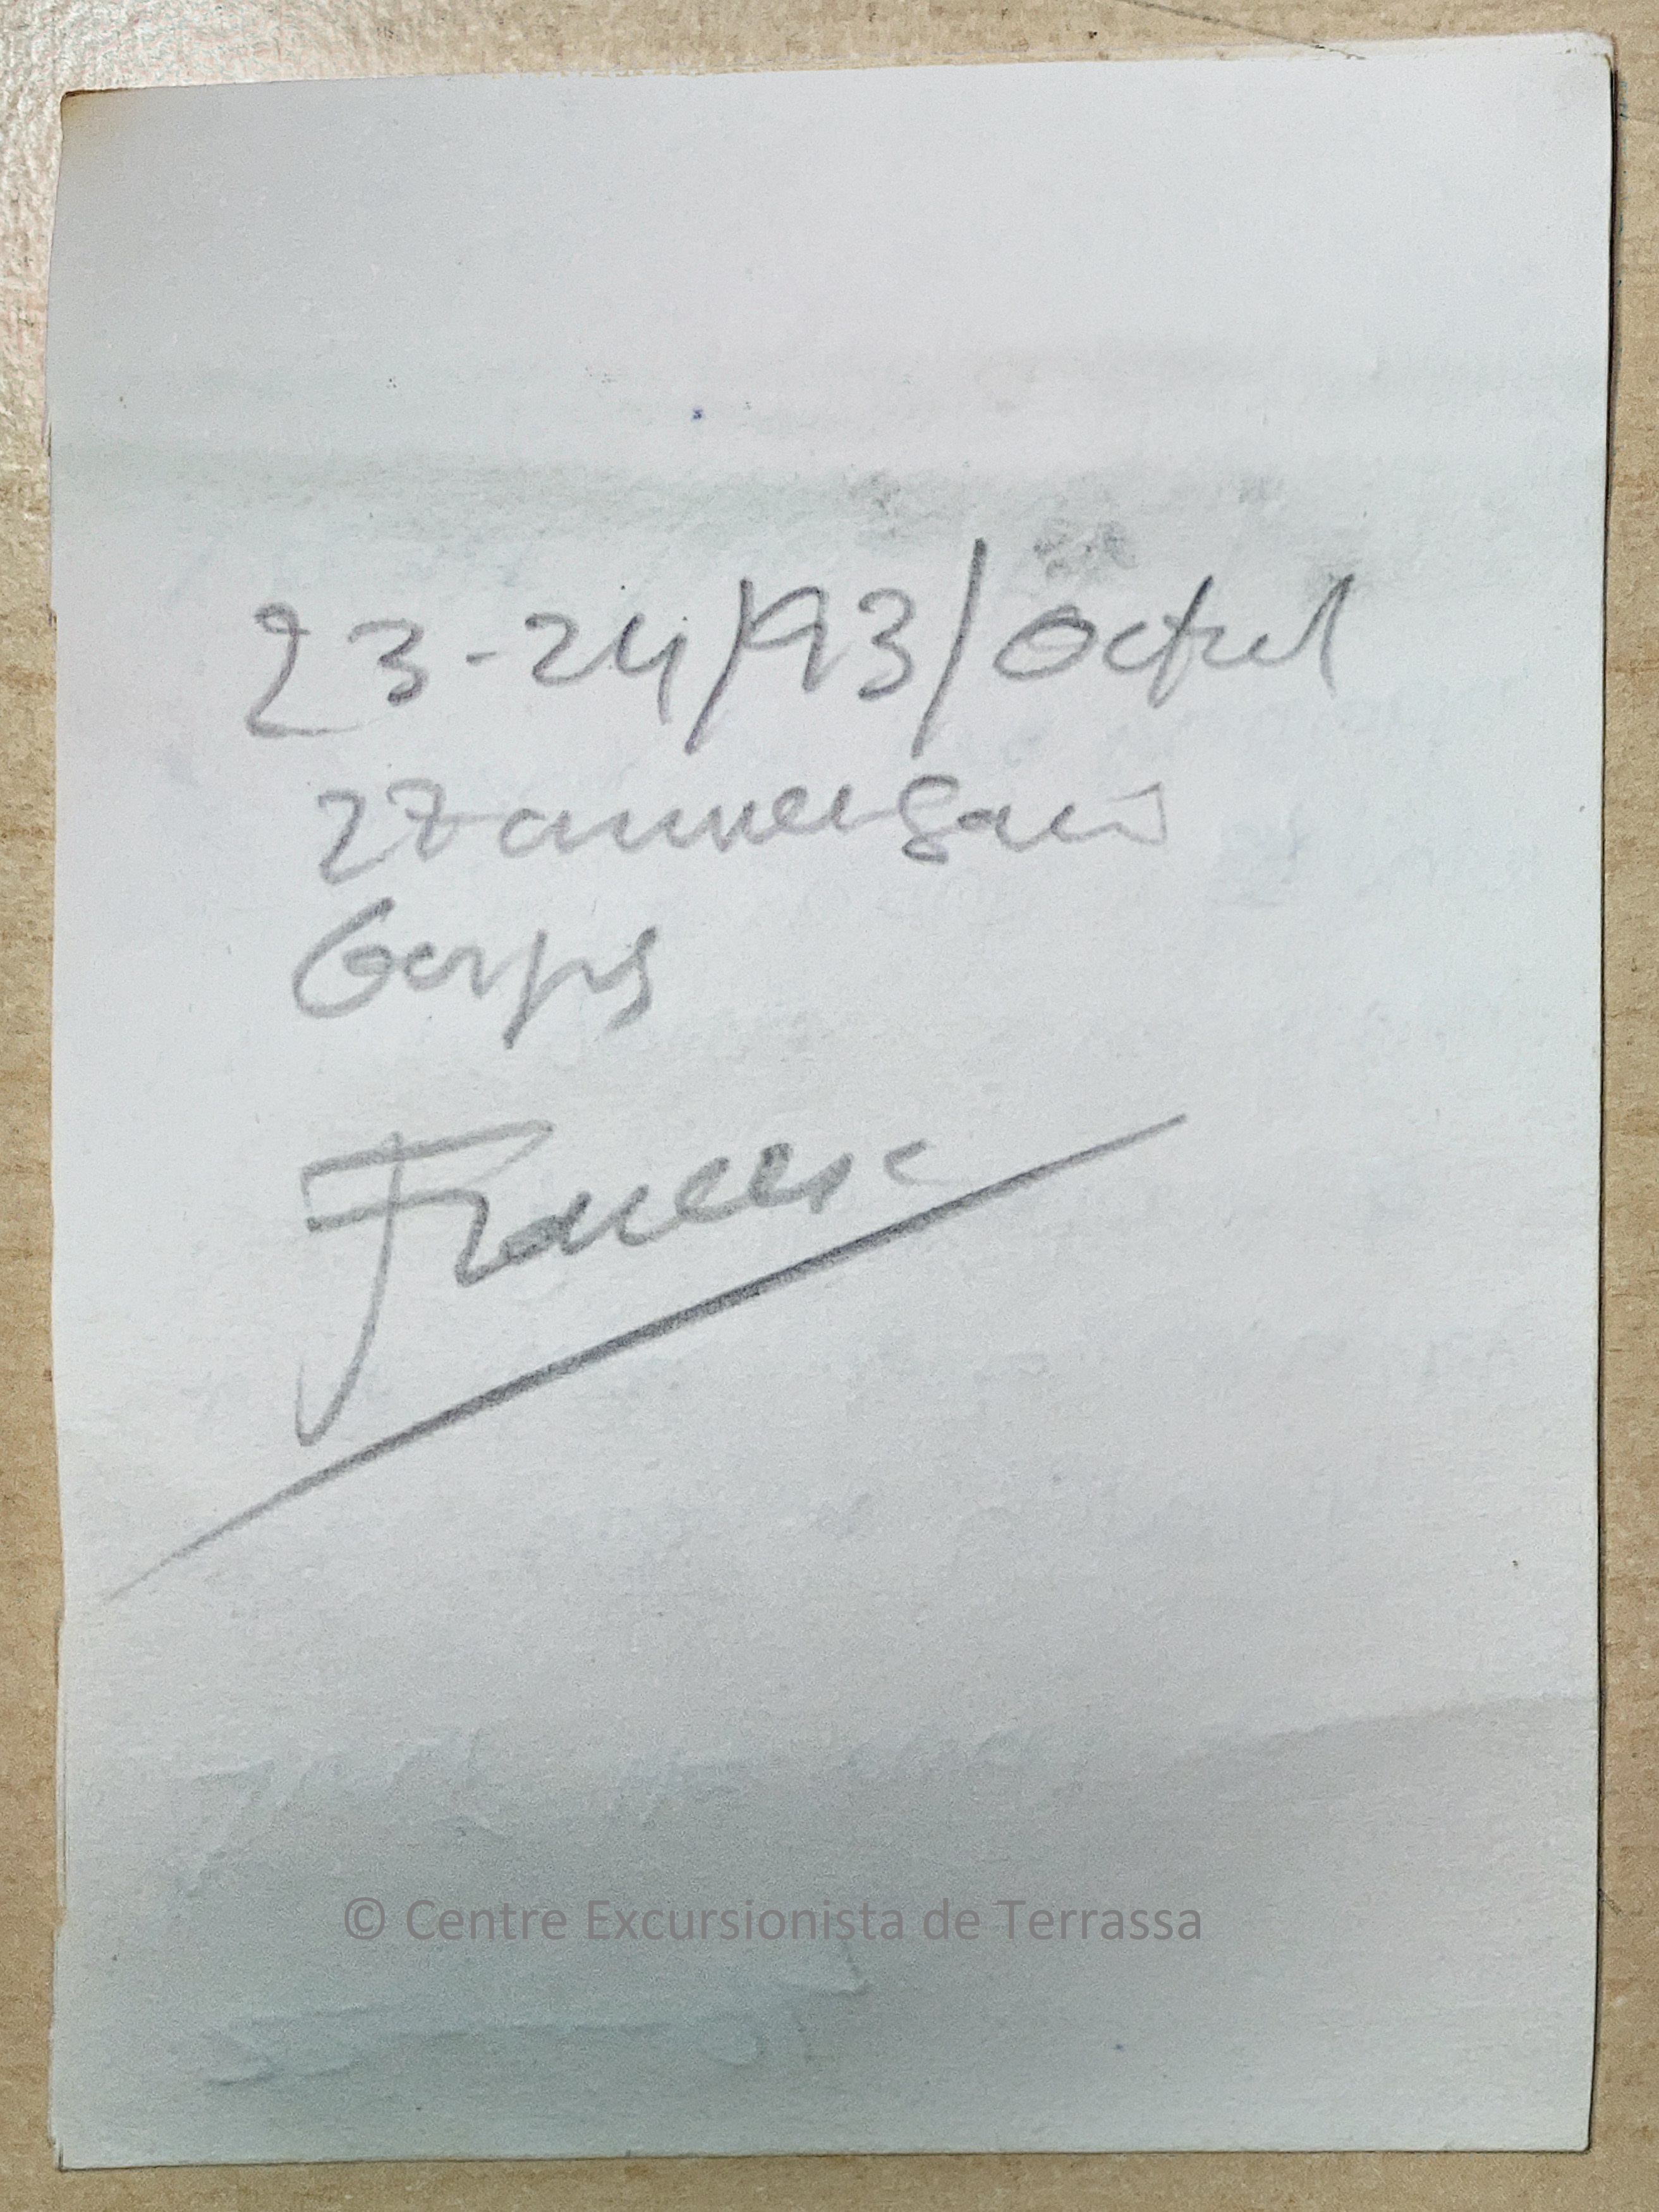 23-24/93/Octub
27 aniversari
Gorgs
Francesc
© Centre Excursionista de Terrassa